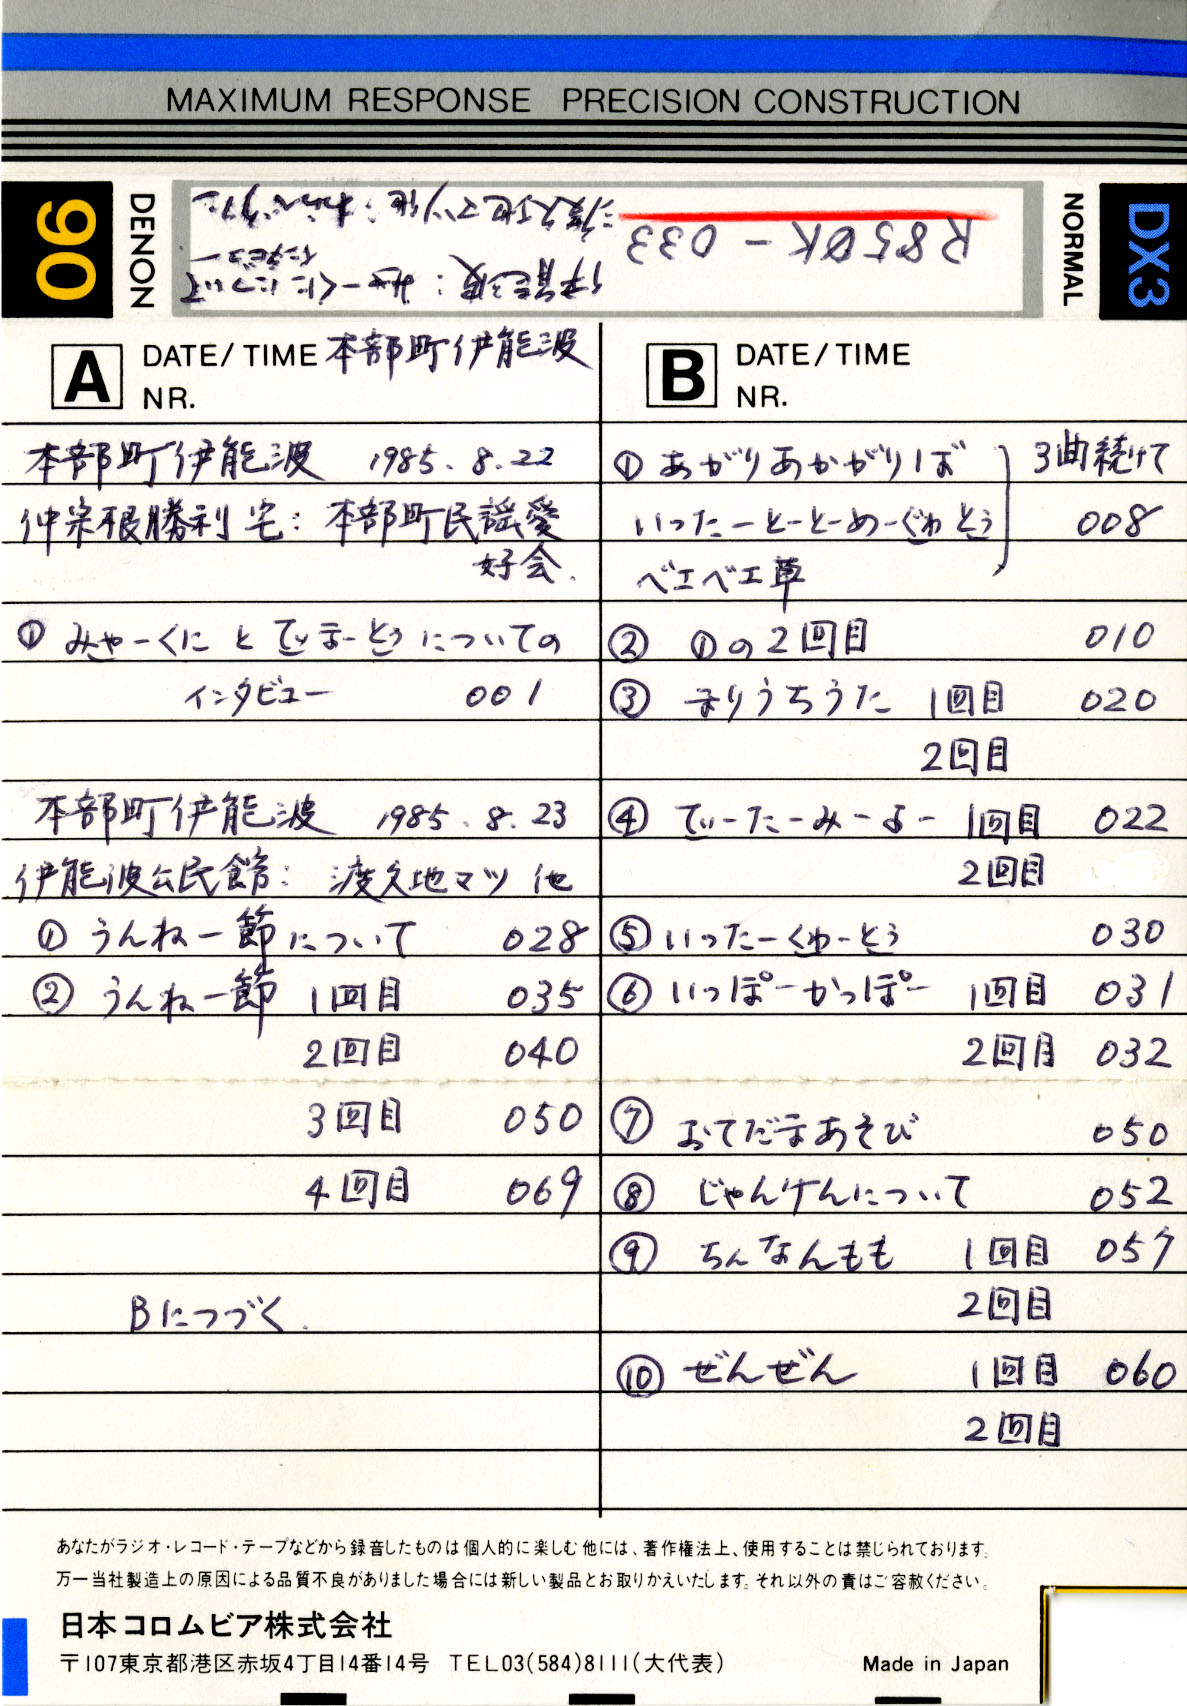 MAXIMUM RESPONSE PRECISION CONSTRUCTION
90
DENON
R850K-033
伊能波：みゃーくにについて
インタビュー
渡久地マツ他：わらべうた
NORMAL
DX3
A DATE/TIME 本部町伊能波
NR.
本部町伊能波 1985.8.22
仲宗根勝利宅：本部町民謡愛
好会.
① みゃーくに と でぃまーとぅ についての
インタビュー 001
本部町伊能波 1985.8.23
伊能波公民館：渡久地マツ 他
① うんねー節について 028
② うんねー節 1回目 035
2回目 040
3回目 050
4回目 069
Bにつづく.
B DATE/TIME
NR.
① あがりあかがりば 3曲続けて
いったーとーとーめーぐゎとぅ 008
ベエベエ草
② ①の2回目 010
③ まりうちうた 1回目 020
2回目
④ でぃーたーみーよー 1回目 022
2回目
⑤ いったーくゎーとぅ 030
⑥ いっぽーかっぽー 1回目 031
2回目 032
⑦ おてだまあそび 050
⑧ じゃんけんについて 052
⑨ ちんなんもも 1回目 057
2回目
⑩ ぜんぜん 1回目 060
2回目
あなたがラジオ・レコード・テープなどから録音したものは個人的に楽しむ他には、著作権法上、使用することは禁じられております。
万一当社製造上の原因による品質不良がありました場合には新しい製品とお取りかえいたします。それ以外の責はご容赦ください。
日本コロムビア株式会社
〒107東京都港区赤坂4丁目14番14号 TEL03(584)8111(大代表) Made in Japan